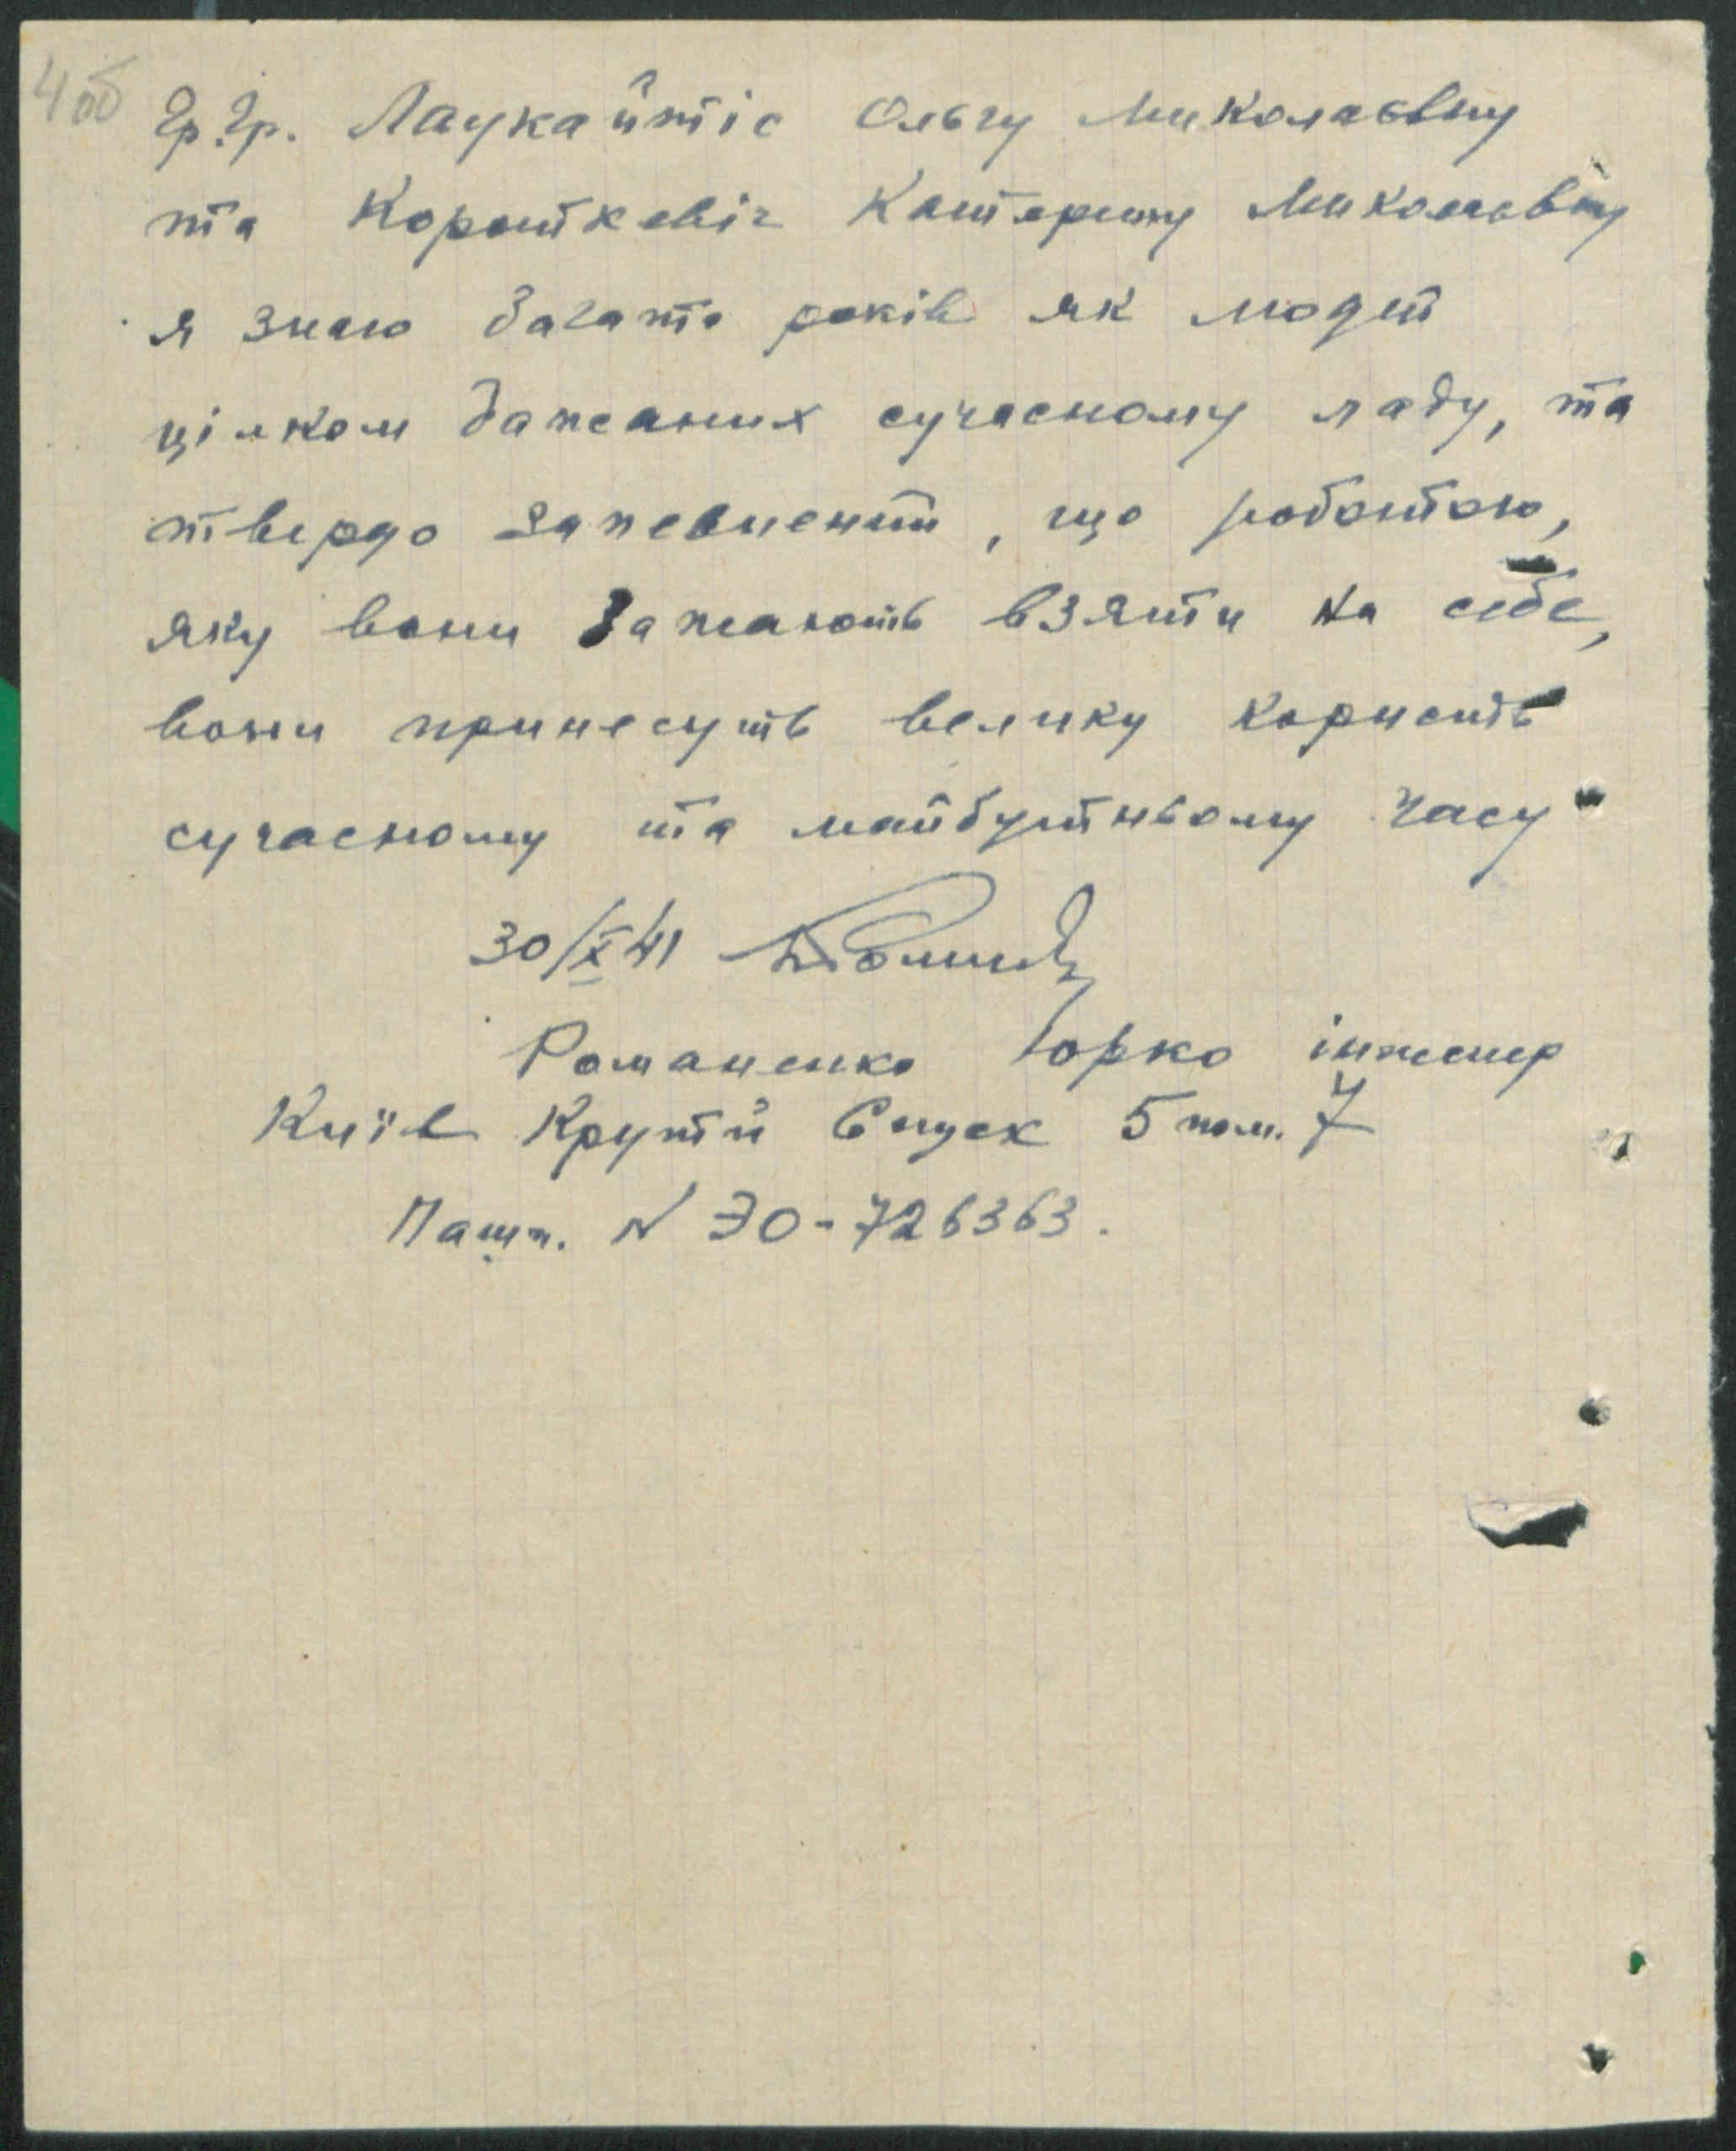 4об
Гр.гр. Лаукайтіс Ольгу Миколаєвну
та Короткевіч Катерину Миколаєвну
я знаю багато років як людей
цілком бажаних сучасному ладу, та
твердо запевнений, що роботою,
яку вони бажають взяти на себе,
вони принесуть велику користь
сучасному та майбутньому часу
30/X 41
Романенко Юрко інженер
Київ Крутий Спуск 5 пом. 7
Пашп. N ЭО-726363.